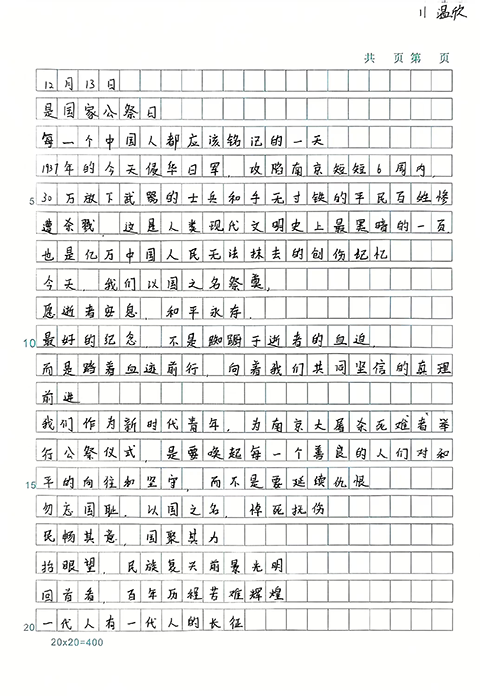 11 温欣
共 页 第 页
12月13日
是国家公祭日
每一个中国人都应该铭记的一天
1937年的今天侵华日军，攻陷南京短短6周内，
5 30万放下武器的士兵和手无寸铁的平民百姓惨
遭杀戮，这是人类现代文明史上最黑暗的一页，
也是亿万中国人民无法抹去的创伤记忆
今天，我们以国之名祭奠，
愿逝者安息，和平永存，
10 最好的纪念，不是踟蹰于逝者的血迹，
而是踏着血迹前行，向着我们共同坚信的真理
前进
我们作为新时代青年，为南京大屠杀死难者举
行公祭仪式，是要唤起每一个善良的人们对和
15 平的向往和坚守，而不是要延续仇恨
勿忘国耻，以国之名，悼死抚伤
民畅其意，国聚其力
抬眼望，民族复兴前景光明
回首看，百年历程苦难辉煌
20 一代人有一代人的长征
20x20=400